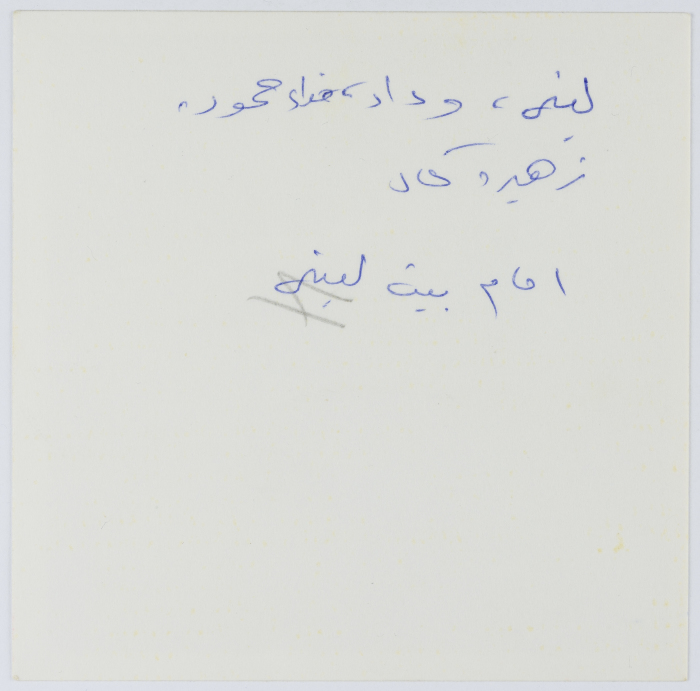 لبنى، وداد، فداء محمود،
زهيرة كمال
امام بيت لبنى